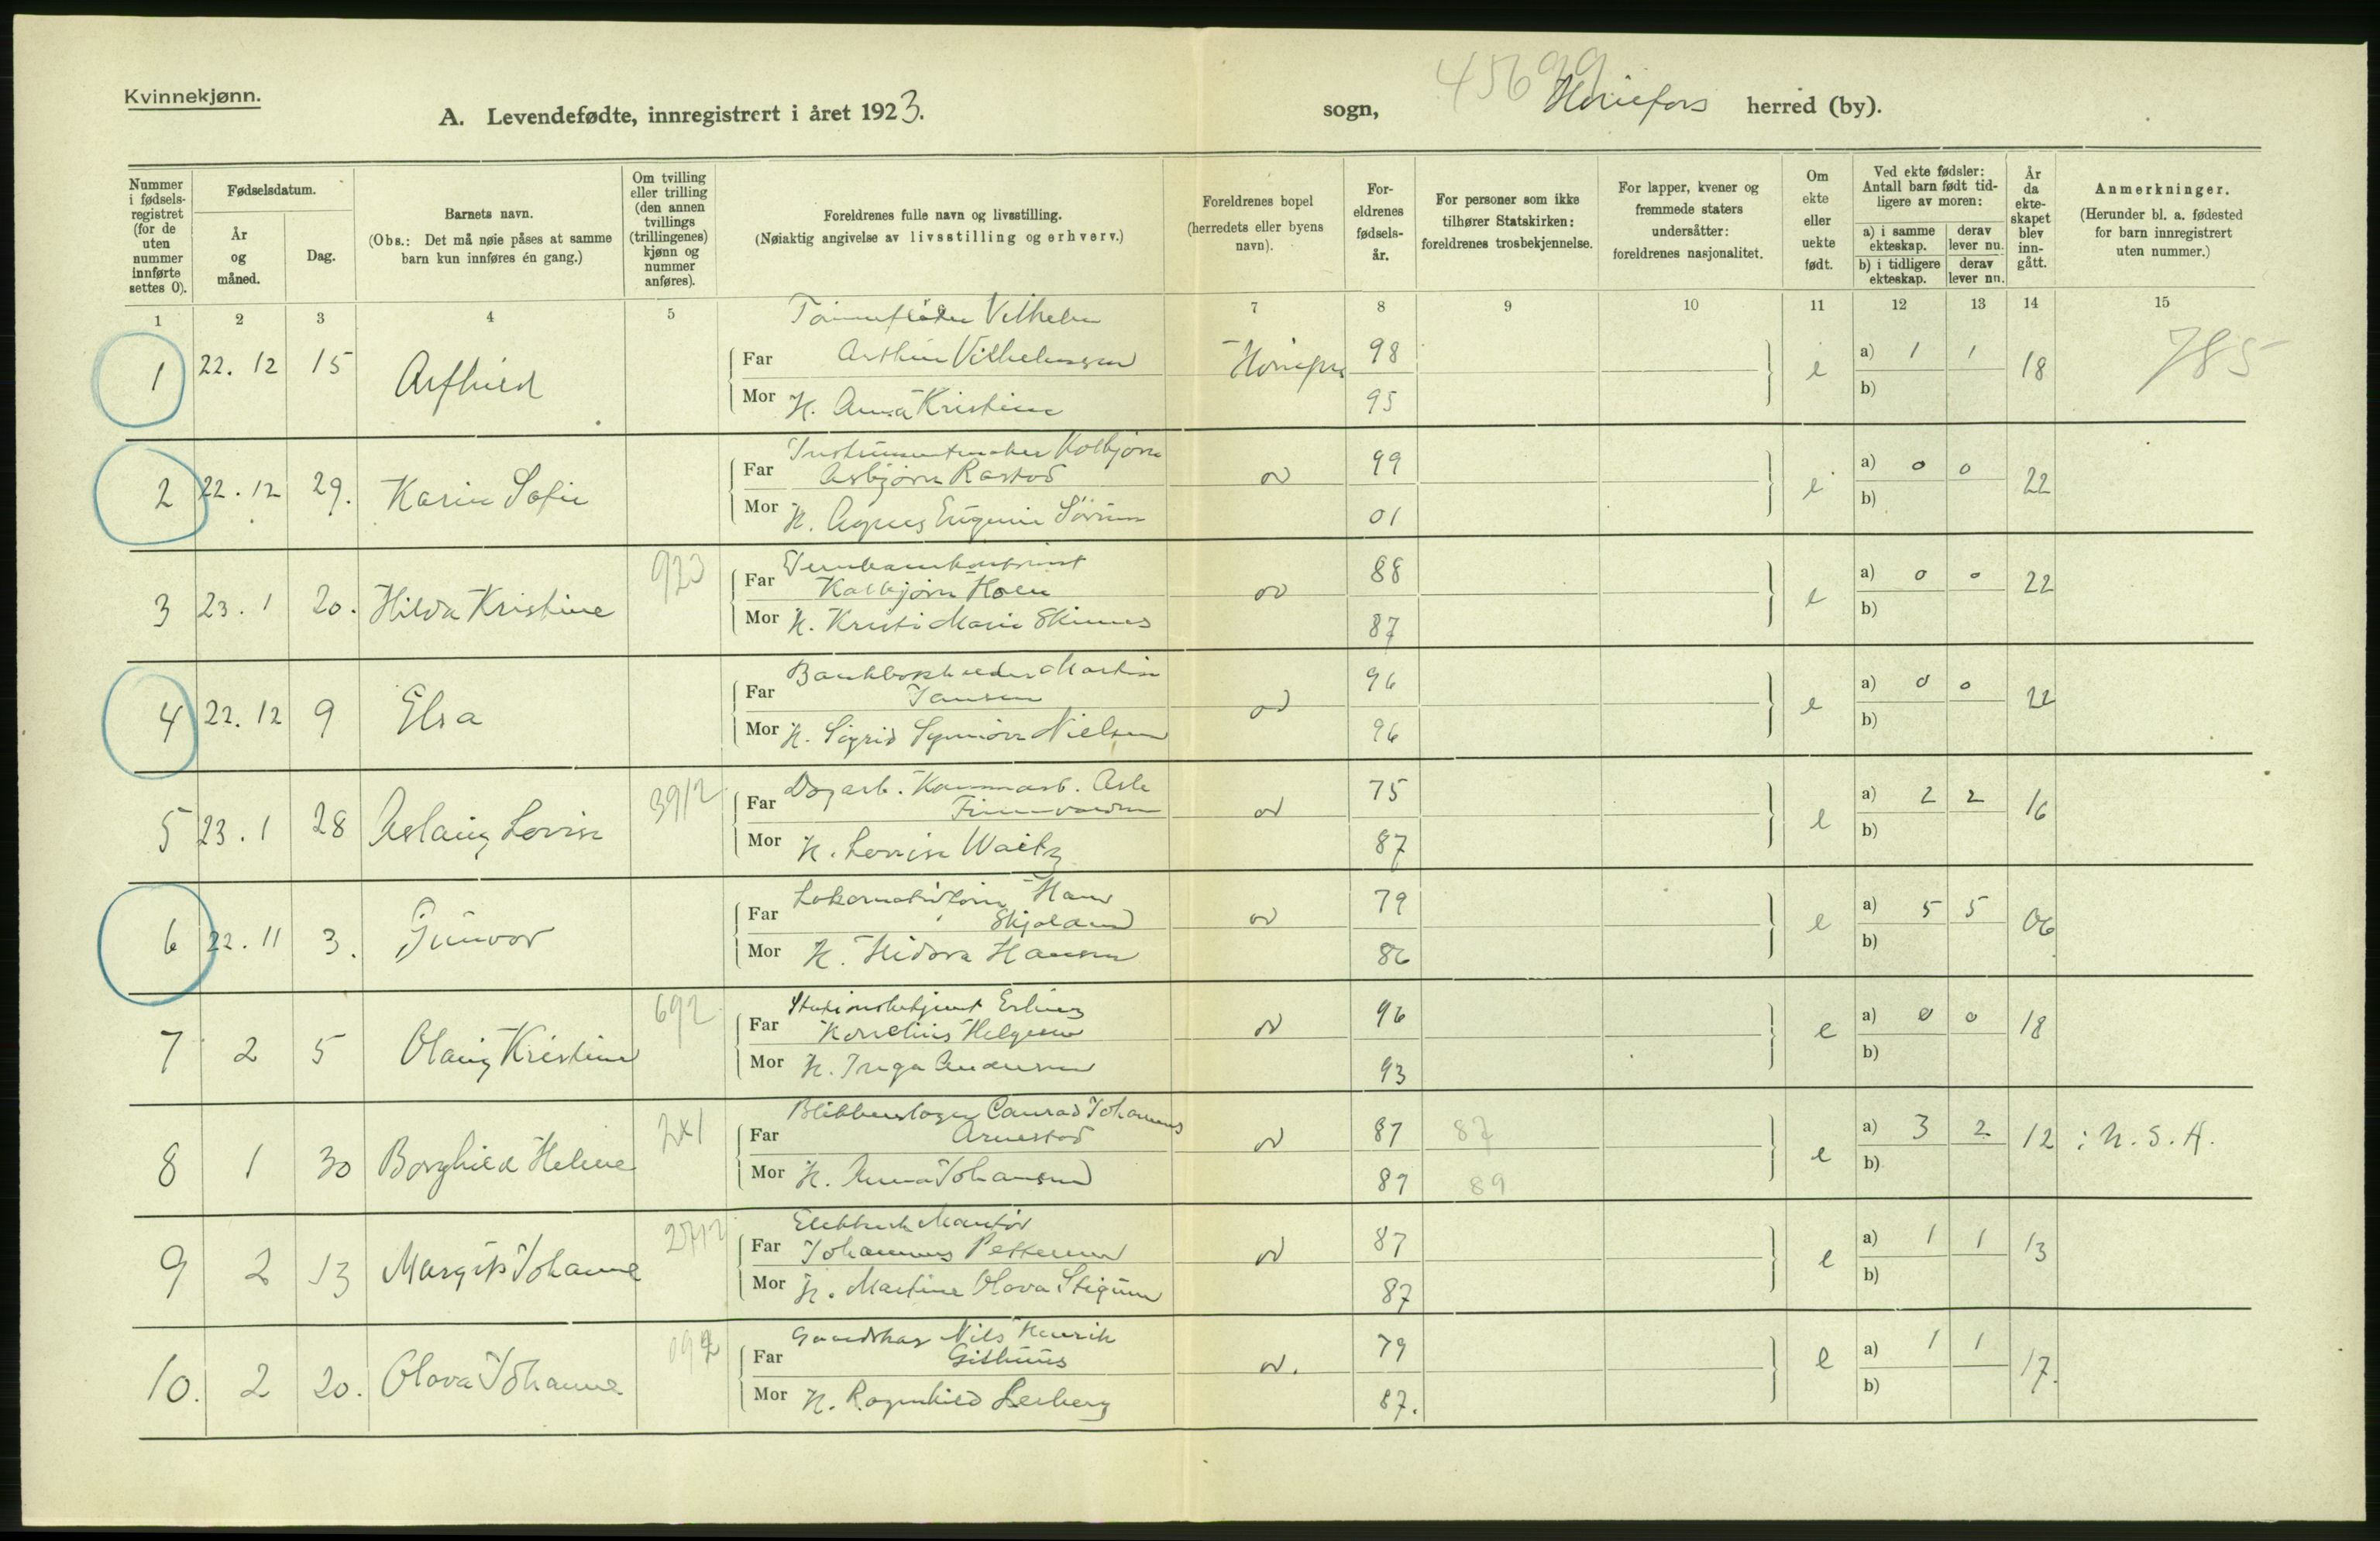 Kvinnekjønn.
A. Levendefødte, innregistrert i året 1923.
sogn, Hønefoss herred (by).
45699
Nummer i fødsels-registret (for de uten nummer innførte settes 0).
Fødselsdatum.
År og måned.
Dag.
Barnets navn.
(Obs.: Det må nøie påses at samme barn kun innføres én gang.)
Om tvilling eller trilling (den annen tvillings (trillingenes) kjønn og nummer anføres).
Foreldrenes fulle navn og livsstilling.
(Nøiaktig angivelse av livsstilling og erhverv.)
Foreldrenes bopel (herredets eller byens navn).
For-eldrenes fødsels-år.
For personer som ikke tilhører Statskirken: foreldrenes trosbekjennelse.
For lapper, kvener og fremmede staters undersåtter: foreldrenes nasjonalitet.
Om ekte eller uekte født.
Ved ekte fødsler: Antall barn født tid-ligere av moren:
a) i samme ekteskap. derav lever nu.
b) i tidligere ekteskap. derav lever nu.
År da ekte-skapet blev inn-gått.
Anmerkninger.
(Herunder bl. a. fødested for barn innregistrert uten nummer.)
1 2 3 4 5 7 8 9 10 11 12 13 14 15
1 22. 12 15 Asfhild
Far Arthur Vilhelmssen 98 e a) 1 1 18 785
Mor H. Anna Kristine 95 b)
2 22. 12 29. Karin Sofie
Far Instrumentmaker Kolbjørn
Asbjørn Rastad 99 e a) 0 0 22
Mor H. Agnes Eugenie Sørum 01 b)
3 23. 1 20. Hilda Kristine 923
Far Kolbjørn Holm 88 e a) 0 0 22
Mor H. Kristi Marie Skinnes 87 b)
4 22. 12 9 Elsa
Far Bankbokholder Martin
Jansen 96 e a) 0 0 22
Mor H. Sigrid Synnøve Nielsen 96 b)
5 23. 1 28 Aslaug Lovise 3912
Far Dagarb. Kommarb. Asle
75 e a) 2 2 16
Mor H. Lovise Waitz 87 b)
6 22. 11 3. Gunvor
Far Hans
Skjoland 79 e a) 5 5 06
Mor H. Hidora Hansen 86 b)
7 2 5 Olaug Kristine 692
Far Stasjonsbetjent Erling
Kornelius Helgesen 96 e a) 0 0 18
Mor H. Inga Andersen 93 b)
8 1 30 Borghild Helene 2x1
Far Blikkenslager Conrad Johannes
Arnestad 87 87 e a) 3 2 12 : U. S. A.
Mor H. Anna Johansen 89 89 b)
9 2 13 Margit Johanne 2712
Far Elektrisk Montør
Johannes Pettersen 87 e a) 1 1 13
Mor H. Martine Olava Stigum 87 b)
10. 2 20. Olava Johanne 092
Far Gaardskar Nils Henrik
Githuus 79 e a) 1 1 17.
Mor H. Ragnhild Lerberg 87. b)